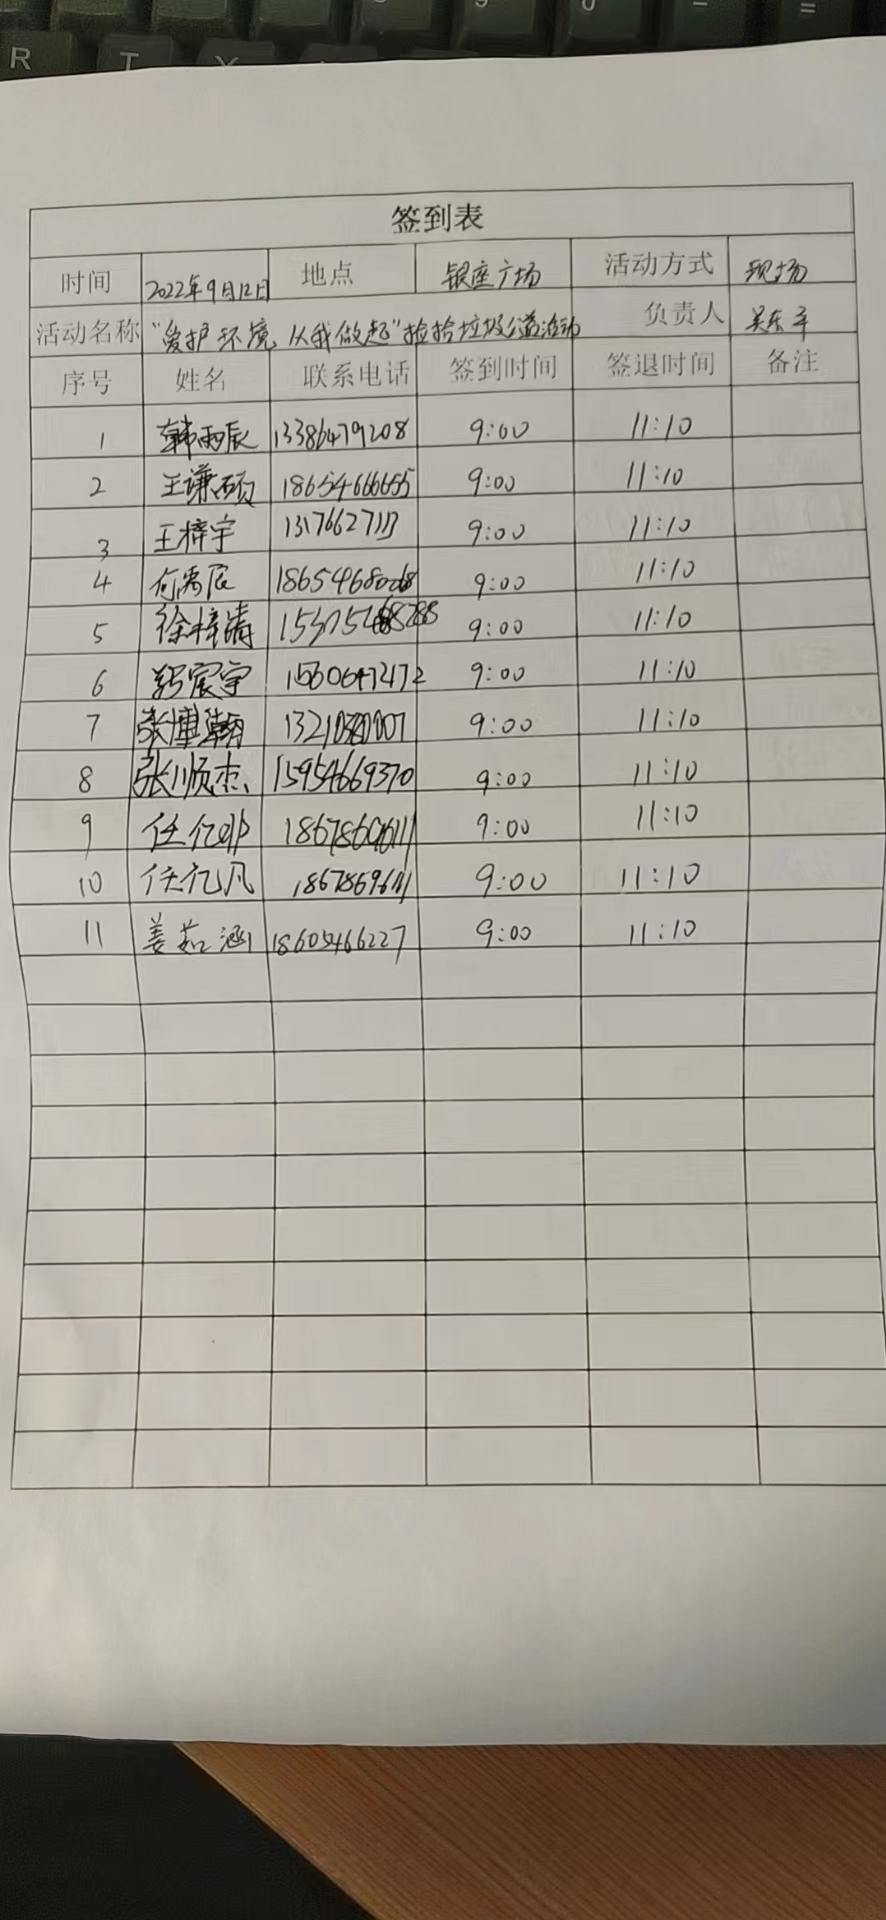 R T
签到表
时间 2022年9月12日 地点 银座广场 活动方式 现场
活动名称 "爱护环境、从我做起"捡拾垃圾公益活动 负责人
序号 姓名 联系电话 签到时间 签退时间 备注
1 韩雨辰 13386479208 9:00 11:10
2 王谦硕 18654666655 9:00 11:10
3 王梓宇 9:00 11:10
4 何禹辰 9:00 11:10
5 徐梓清 9:00 11:10
6 宸宇 15606472172 9:00 11:10
7 张博翰 9:00 11:10
8 张顺杰 15954669370 9:00 11:10
9 任亿 9:00 11:10
10 任亿凡 18678696111 9:00 11:10
11 姜茹涵 18605466227 9:00 11:10